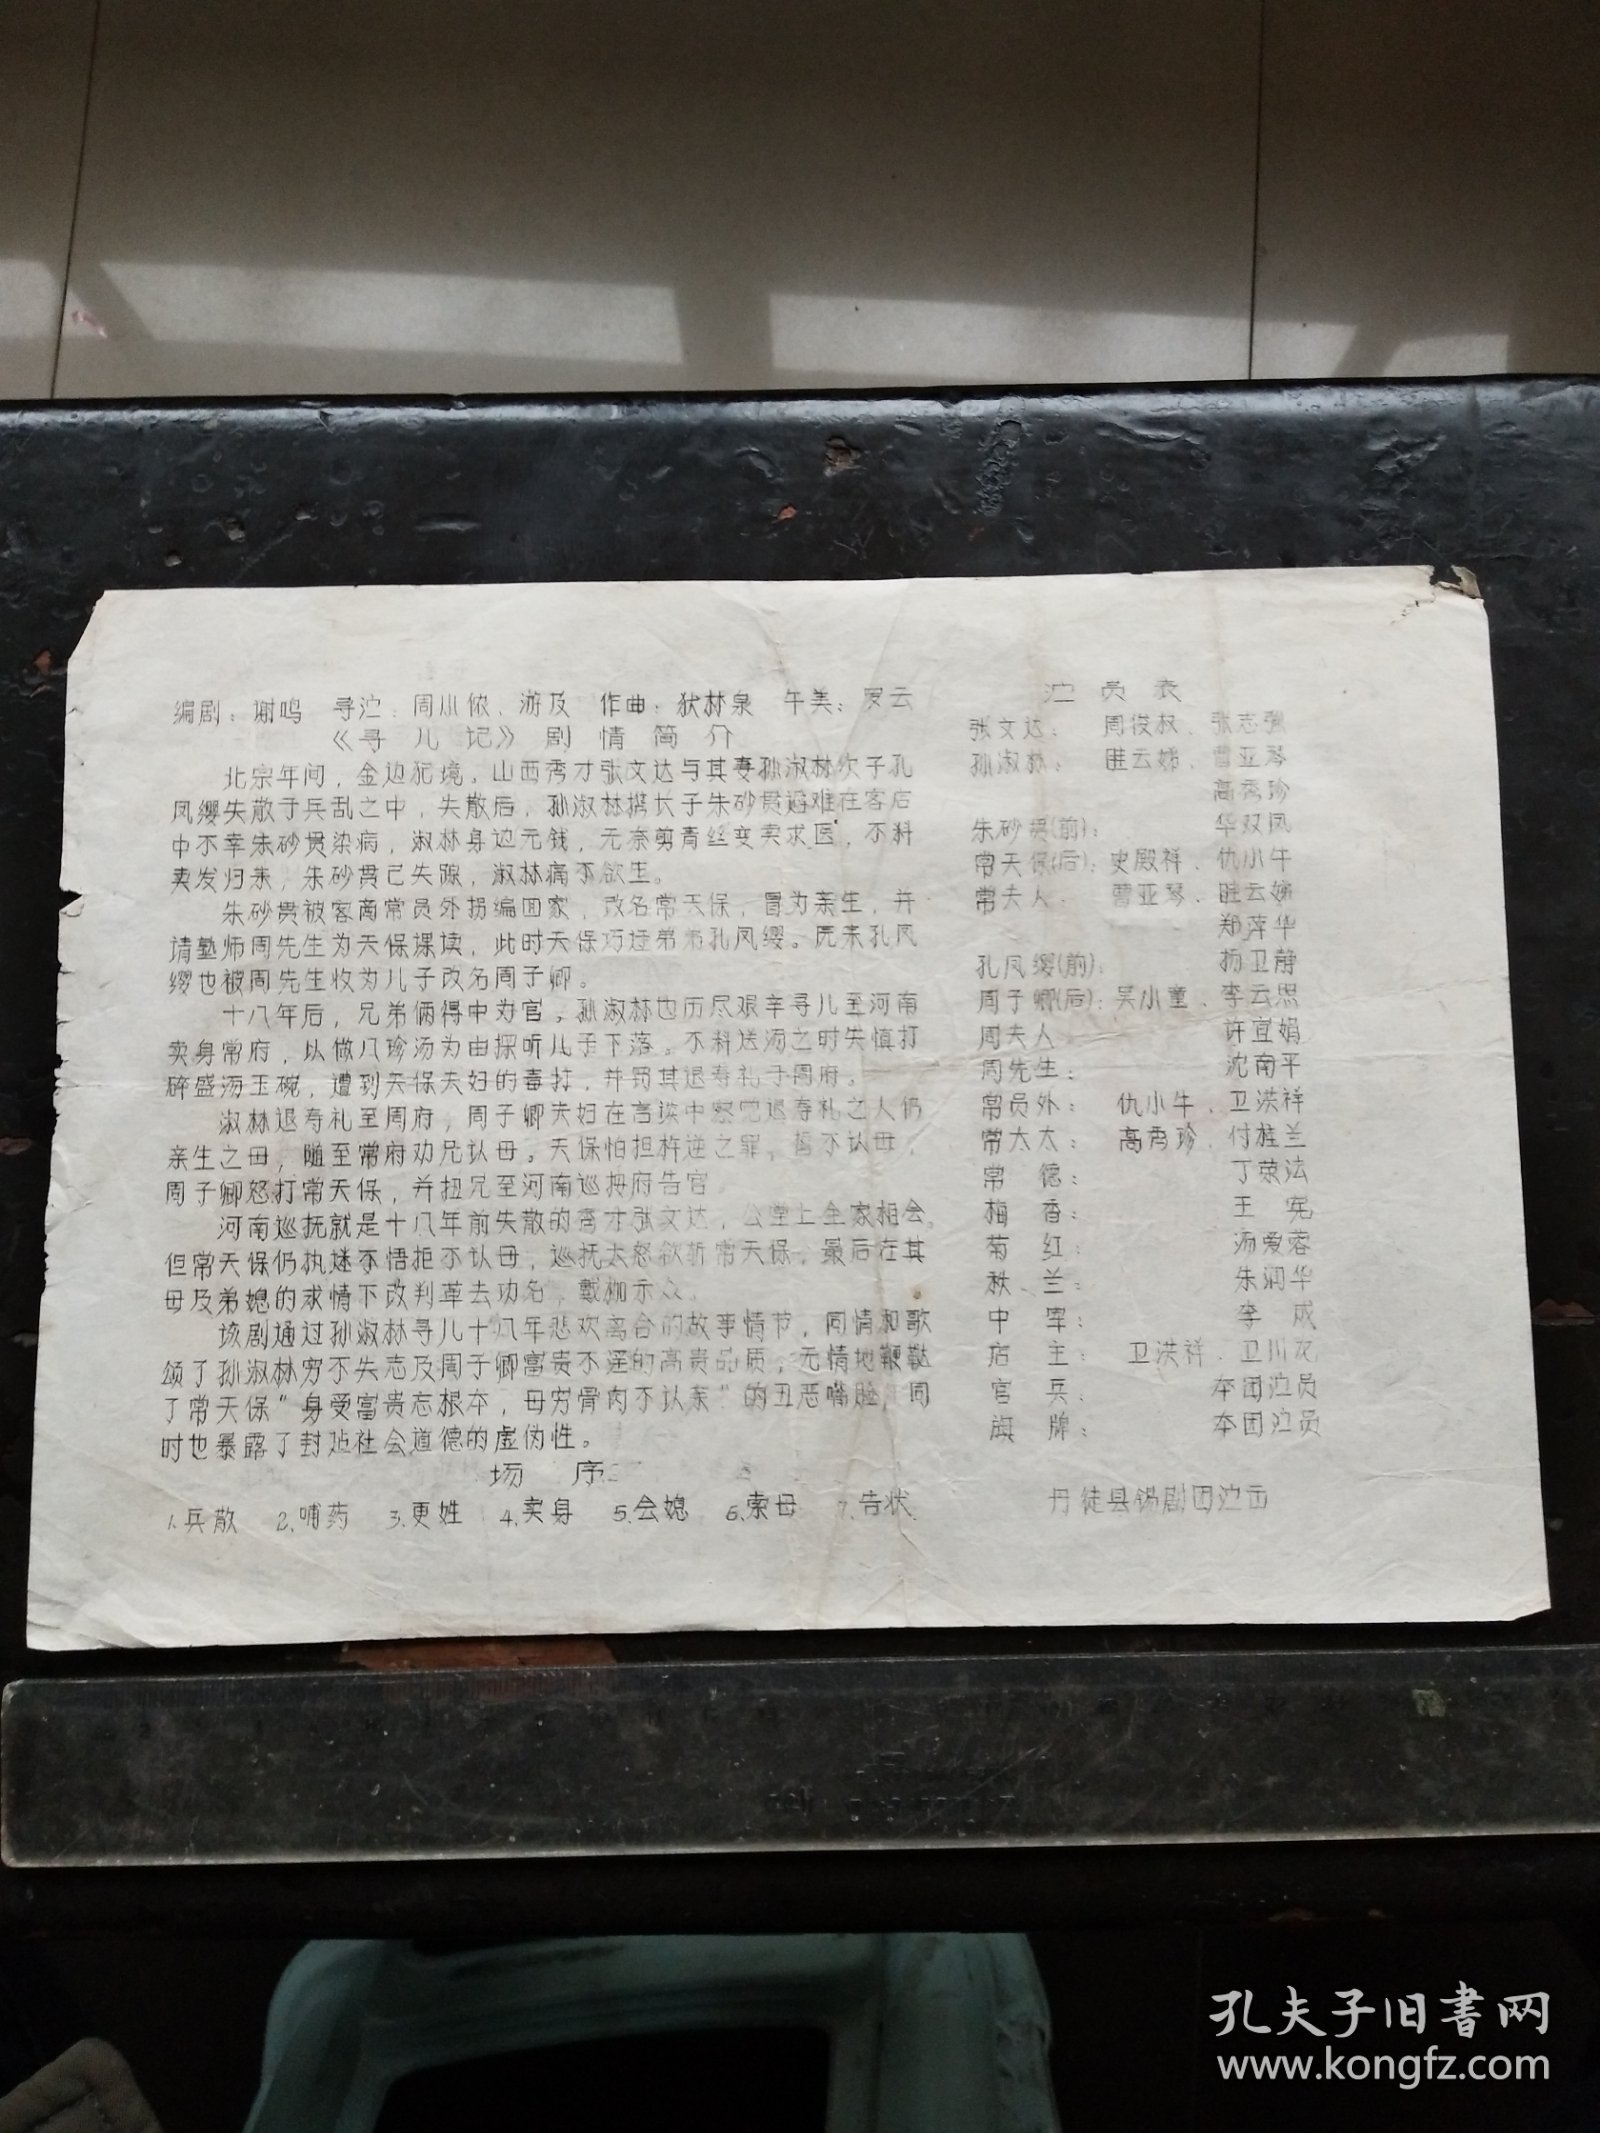 编剧：谢鸣 寻沱：周小侬、游及 作曲：狄林泉 午美：罗云
《寻儿记》剧情简介
北宗年间，金边犯境。山西秀才张文达与其妻孙淑林次子孔
凤缨失散于兵乱之中，失散后，孙淑林携长子朱砂贯避难在客店
中不幸朱砂贯染病，淑林身边无钱，无奈剪青丝变卖求医，不料
卖发归来，朱砂贯已失踪，淑林痛不欲生。
朱砂贯被客商常员外拐骗回家，改名常天保，冒为亲生，并
请塾师周先生为天保课读，此时天保巧逢弟弟孔凤缨。原来孔凤
缨也被周先生收为儿子改名周子卿。
十八年后，兄弟俩得中为官。孙淑林也历尽艰辛寻儿至河南
卖身常府，以做八珍汤为由探听儿子下落。不料送汤之时失慎打
碎盛汤玉碗，遭到天保夫妇的毒打，并罚其退寿礼于周府。
淑林退寿礼至周府，周子卿夫妇在言谈中察觉退寿礼之人仍
亲生之母，随至常府劝兄认母。天保怕担忤逆之罪，誓不认母，
周子卿怒打常天保，并扭兄至河南巡抚府告官。
河南巡抚就是十八年前失散的秀才张文达，公堂上全家相会。
但常天保仍执迷不悟拒不认母，巡抚大怒欲斩常天保，最后在其
母及弟媳的求情下改判革去功名，戴枷示众。
该剧通过孙淑林寻儿十八年悲欢离合的故事情节，同情和歌
颂了孙淑林穷不失志及周子卿富贵不淫的高贵品质，无情地鞭鞑
了常天保“身受富贵忘根本，母穷骨肉不认亲”的丑恶嘴脸，同
时也暴露了封建社会道德的虚伪性。
场 序
1、兵散 2、哺药 3、更姓 4、卖身 5、会媳 6、索母 7、告状
沱员表
张文达： 周俊叔、张志强
孙淑林： 眭云娣、曹亚琴
高秀珍
朱砂贯(前)： 华双凤
常天保(后)：史殿祥、仇小牛
常夫人： 曹亚琴、眭云娣
郑萍华
孔凤缨(前)： 扬卫静
周子卿(后)：吴小童、李云思
周夫人： 许宜娟
周先生： 沈南平
常员外： 仇小牛、卫洪祥
常太太： 高秀珍、付桂兰
常 德： 丁荣法
梅 香： 王 宪
菊 红： 汤爱蓉
秩 兰： 朱润华
中 军： 李 成
店 主： 卫洪祥、卫川龙
官 兵： 本团沱员
旗 牌： 本团沱员
丹徒县锡剧团沱出
孔夫子旧書网
www.kongfz.com